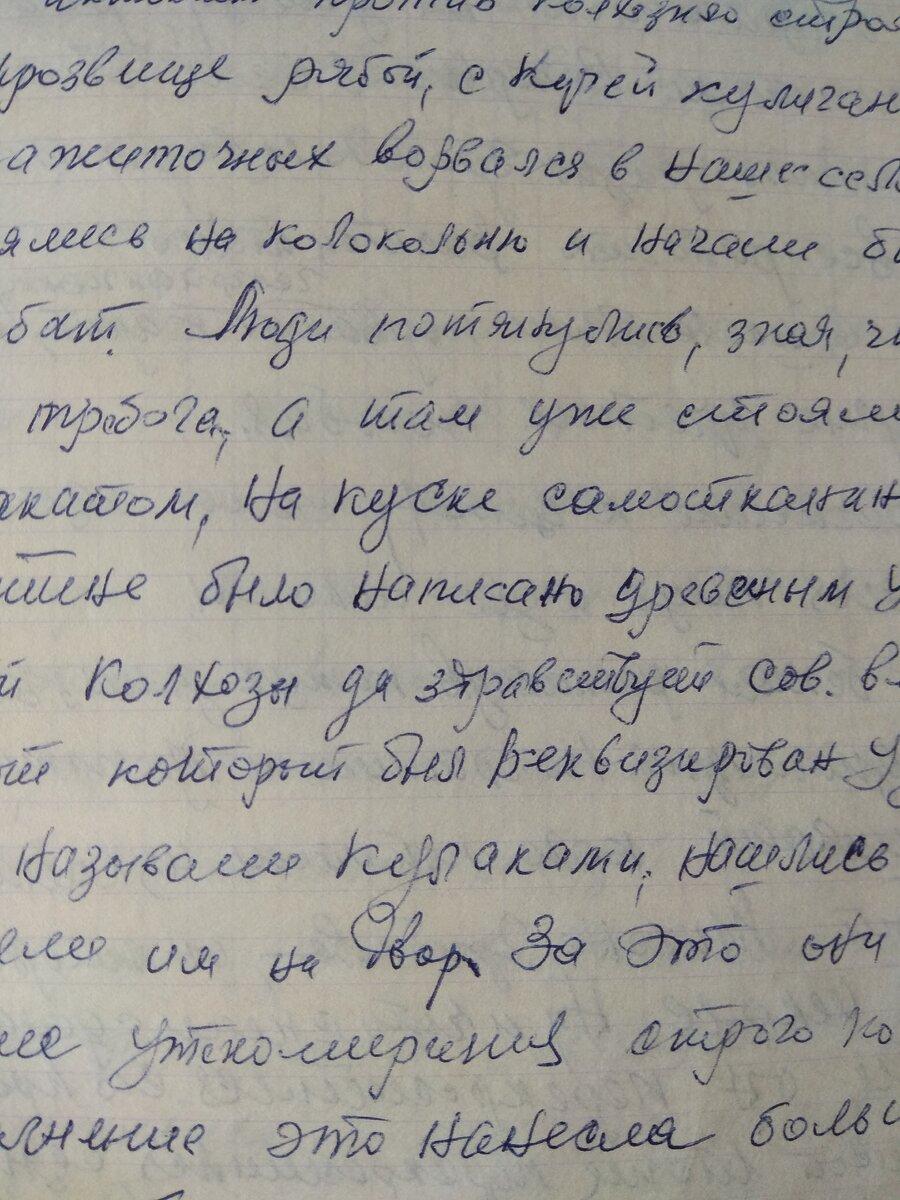 против колхозного строя
прозвище рябой, с кучей хулиган
ажиточных ворвался в наше сел
ялись на колокольню и начали б
бат. Люди потянулись, зная, ч
тревога, а там уже стояли
акатом, на куске самоткан
было написано древесным у
й колхозы да здравствует сов. в
который был реквизирован у
называли кулаками, нашлись
ели им на двор. За это они
утихомирения строго ко
лнение это нанесла больш